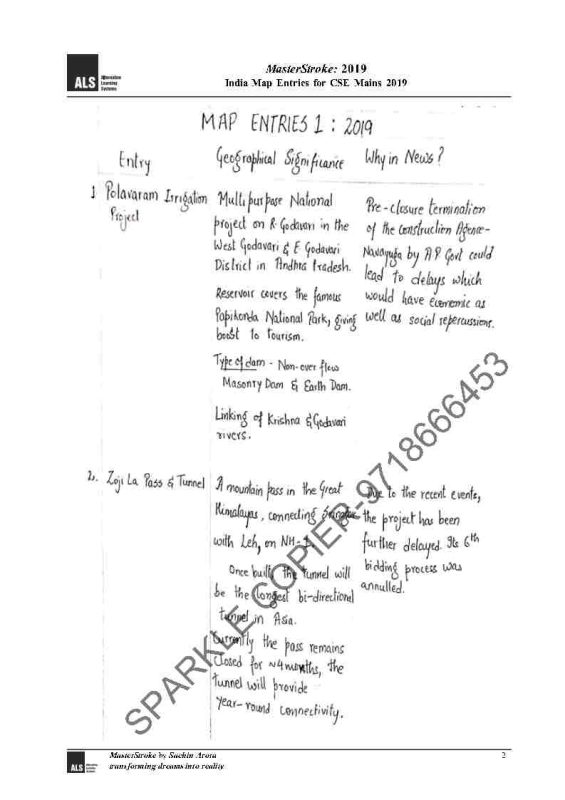 ALS Alternative
Learning
Systems
MasterStroke: 2019
India Map Entries for CSE Mains 2019
MAP ENTRIES 1 : 2019
Entry
Geographical Significance
Why in News?
1 Polavaram Irrigation
Project
Multipurpose National
project on R. Godavari in the
West Godavari & E Godavari
District in Andhra Pradesh.
Reservoir covers the famous
Papikonda National Park, giving
boost to Tourism.
Type of dam - Non-over flow
Masonry Dam & Earth Dam.
Linking of Krishna & Godavari
rivers.
Pre-closure termination
of the Construction Agence-
Navayuga by AP Govt could
lead to delays which
would have economic as
well as social repercussions.
2. Zoji La Pass & Tunnel
A mountain pass in the Great
Himalayas, connecting Srinagar
with Leh, on NH-1.
Once built, the tunnel will
be the longest bi-directional
tunnel in Asia.
Currently the pass remains
closed for ~4 months, the
tunnel will provide
year-round connectivity.
Due to the recent events,
the project has been
further delayed. Its 6th
bidding process was
annulled.
SPARKLE COPIER-9718666453
ALS
MasterStroke by Sachin Arora
transforming dreams into reality
2